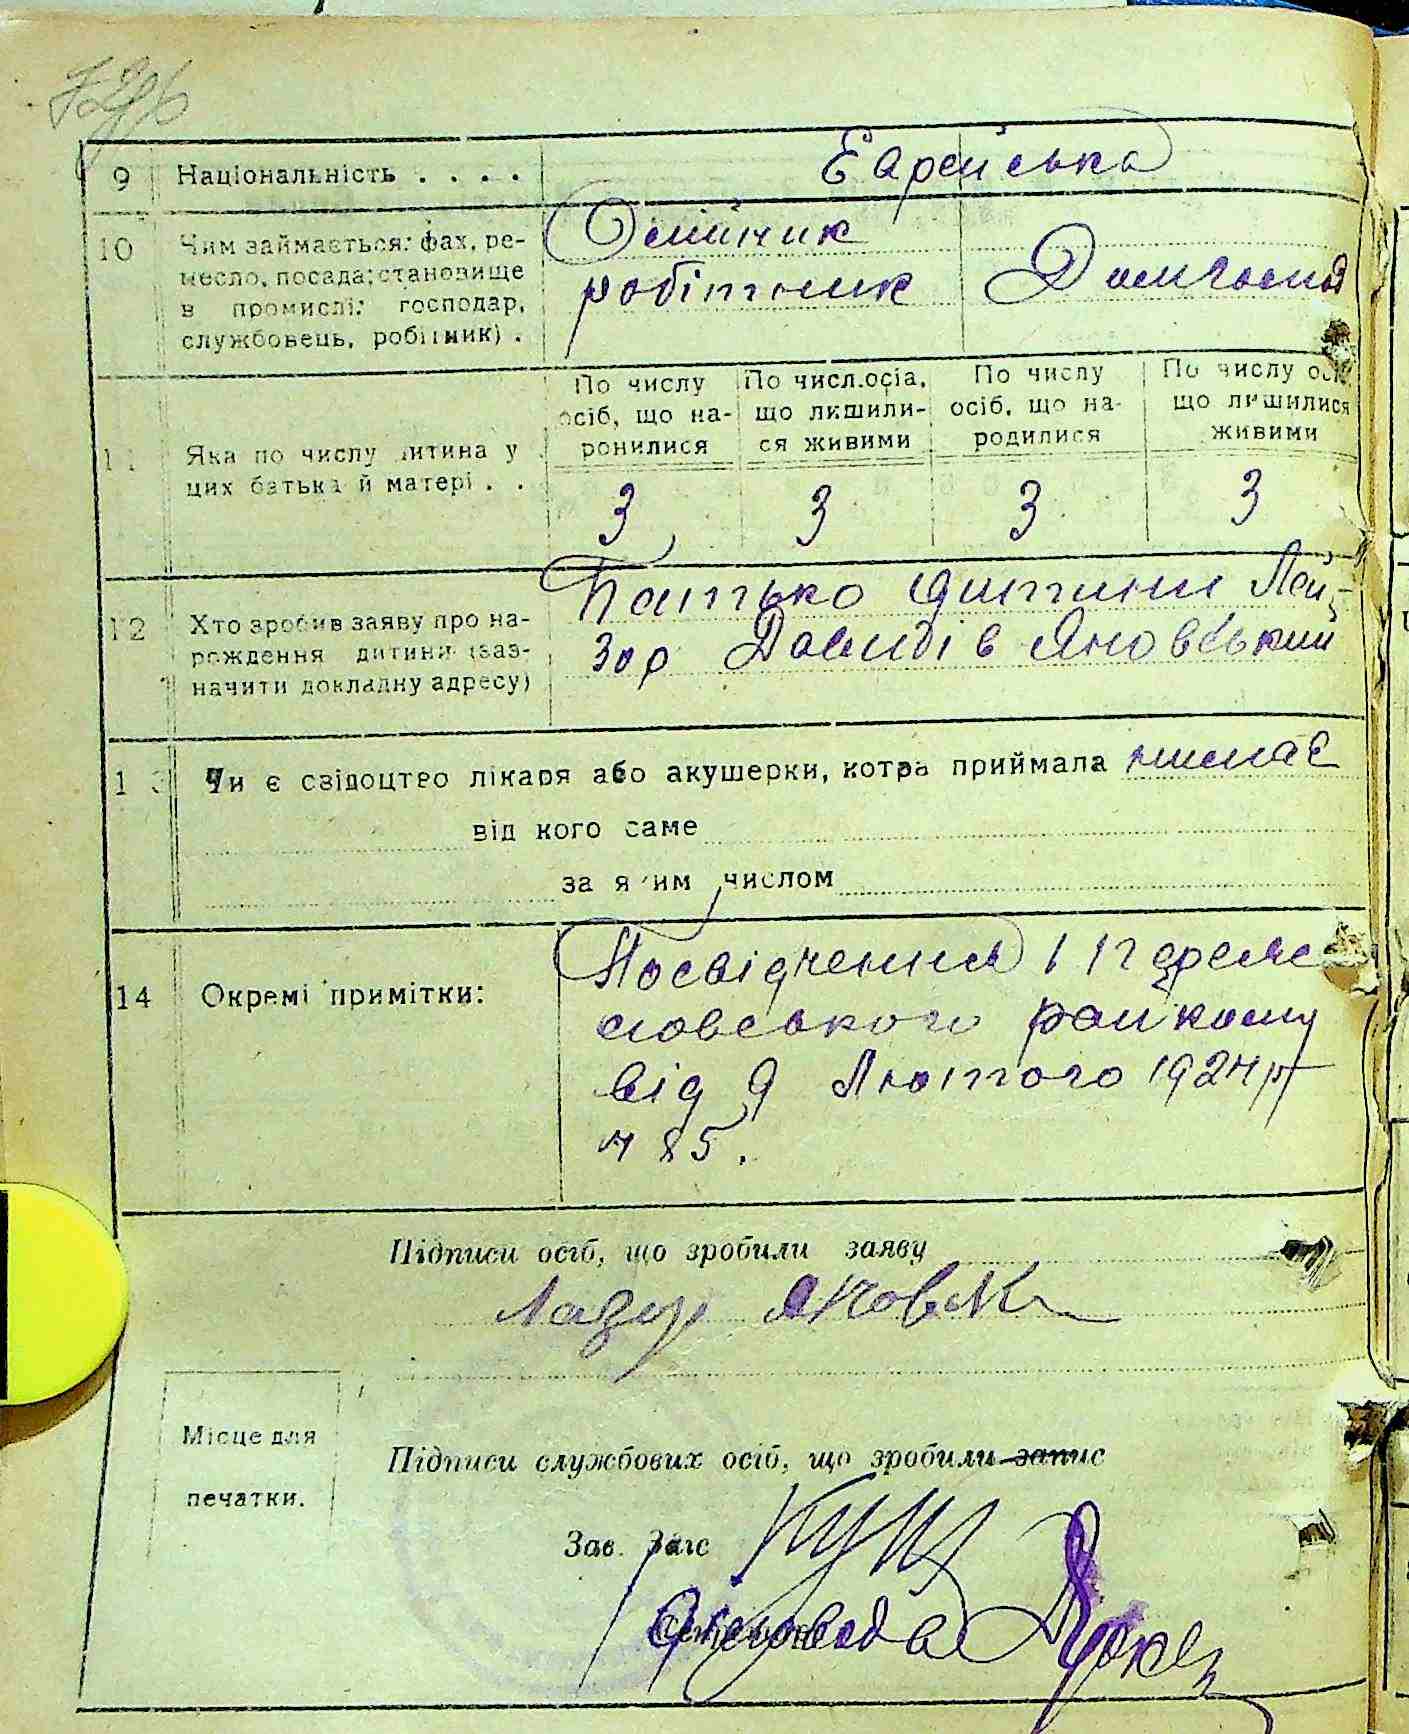 9 Національність . . . .
Еврейська
10 Чим займається: фах, ре-
месло, посада; становище
в промислі: господар,
службовець, робітник) .
Олійник
робітник
Домгоспод
11 Яка по числу дитина у
цих батька й матері . .
По числу
осіб, що на-
ронилися
По числ.осіа,
що лишили-
ся живими
По числу
осіб, що на-
родилися
По числу осіб
що лишилися
живими
3 3 3 3
12 Хто зробив заяву про на-
рождення дитини (заз-
начити докладну адресу)
Батько дитини Лей-
зор Довидів Яновський
13 Чи є свідоцтво лікаря або акушерки, котра приймала немає
від кого саме
за яким числом
14 Окремі примітки:
Посвідчення
райкому
від 9 Лютого 1924 р
ч 85.
Підписи осіб, що зробили заяву
Місце для
печатки.
Підписи службових осіб, що зробили запис
Зав. Загс